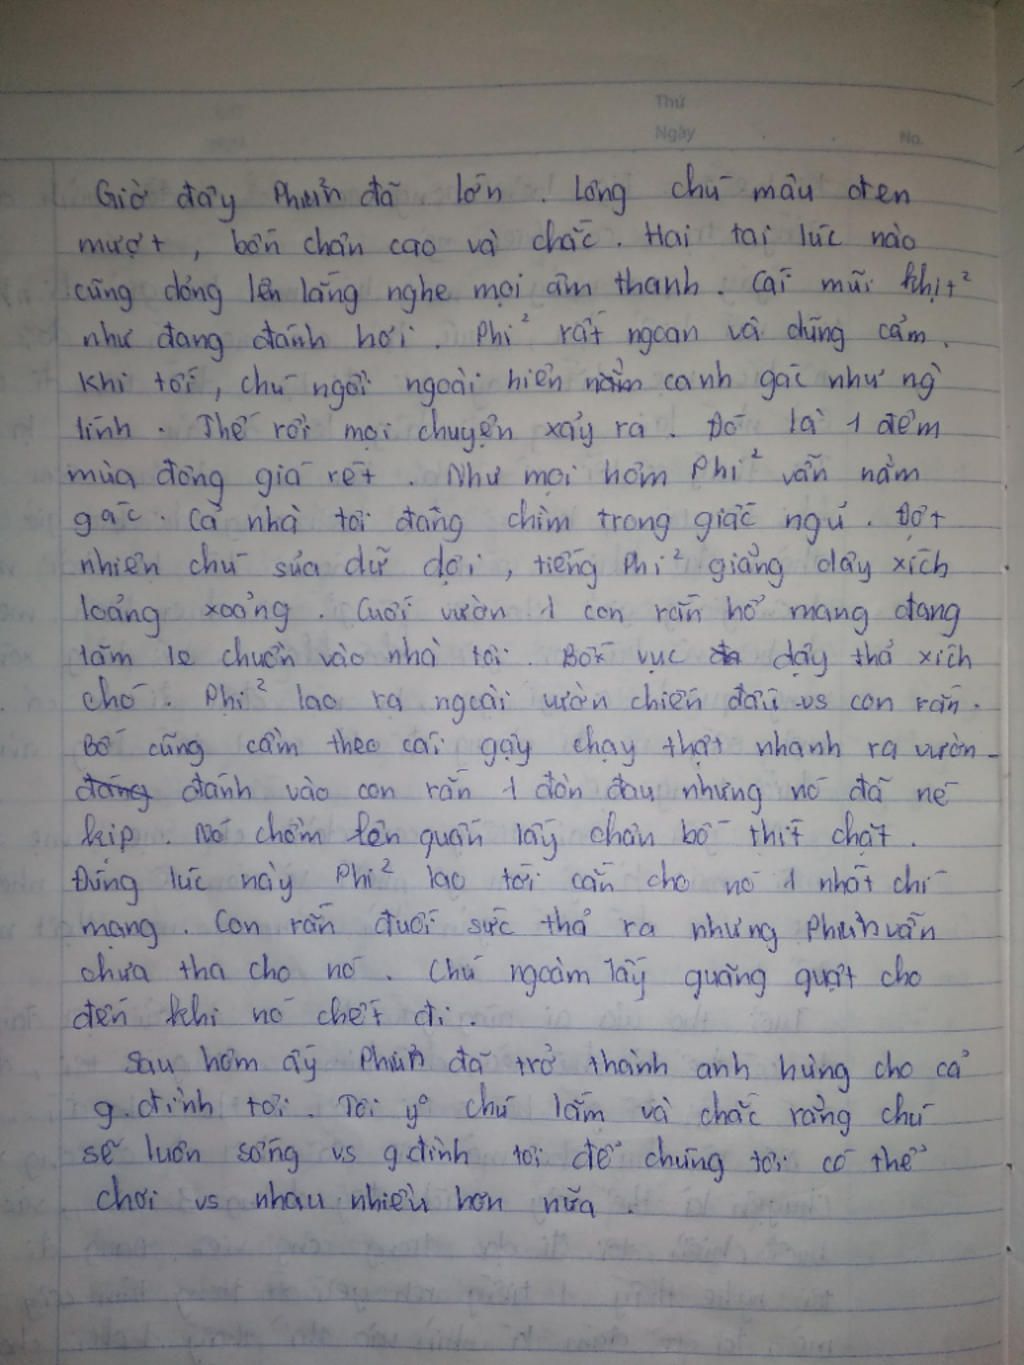 Thứ
Ngày
No.
Giờ đây Phiin đã lớn. Lông chú màu đen
mượt, bốn chân cao và chắc. Hai tai lúc nào
cũng dỏng lên lắng nghe mọi âm thanh. Cái mũi khịt²
như đang đánh hơi. Phi² rất ngoan và dũng cảm.
Khi tối, chú ngồi ngoài hiên nằm canh gác như ng`
lính. Thế rồi mọi chuyện xảy ra. Đó là 1 đêm
mùa đông giá rét. Như mọi hôm Phi² vẫn nằm
gác. Cả nhà tôi đang chìm trong giấc ngủ. Đột
nhiên chú sủa dữ dội, tiếng Phi² giằng dây xích
loảng xoảng. Cuối vườn 1 con rắn hổ mang đang
lăm le chuồn vào nhà tôi. Bố vực dậy thả xích
chó. Phi² lao ra ngoài vườn chiến đấu vs con rắn.
Bố cũng cầm theo cái gậy chạy thật nhanh ra vườn
đánh vào con rắn 1 đòn đau nhưng nó đã né
kịp. Nó chồm lên quấn lấy chân bố thít chặt.
Đúng lúc này Phi² lao tới cắn cho nó 1 nhát chí
mạng. Con rắn đuối sức thả ra nhưng Phiin vẫn
chưa tha cho nó. Chú ngoàm lấy quăng quật cho
đến khi nó chết đi.
Sau hôm ấy Phiin đã trở thành anh hùng cho cả
g.đình tôi. Tôi y° chú lắm và chắc rằng chú
sẽ luôn sống vs g.đình tôi để chúng tôi có thể
chơi vs nhau nhiều hơn nữa.